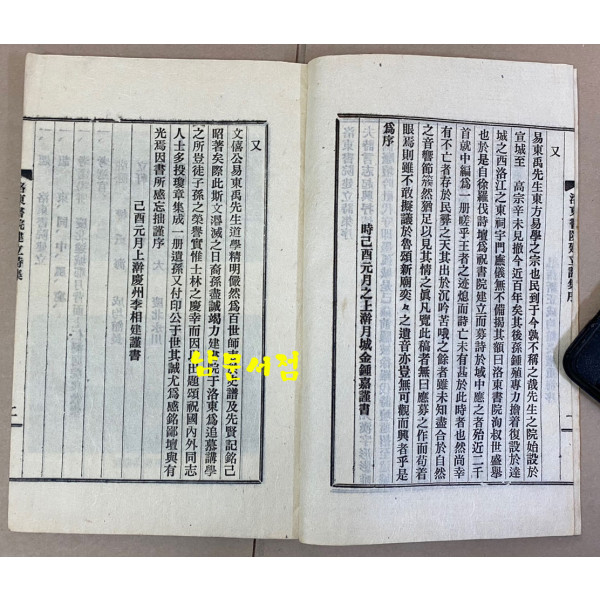 又
易東禹先生東方易學之宗也民到于今孰不稱之哉先生之院始設於
宣城至　高宗辛未見撤今近百年矣其後孫鍾殖專力擔着復設於達
城之西洛江之東祠宇門廡儀無不備揭其額曰洛東書院洵叔世盛擧
也於是自徐羅伐詩壇爲祝書院建立而募詩於域中應之者殆近二千
首就中編爲一册嗟乎王者之迹熄而詩亡未有甚於此時者也然尚幸
有不亡者存於民彝之天其出於沉吟苦嗫之餘者雖未知盡合於自然
之音響節簇然猶足以見其情之眞凡覽此稿者無曰應募之作而苟着
眼焉則雖不敢擬議於魯頌新廟奕々之遺音亦豈無可觀而興者乎是
爲序
時己酉元月之上澣月城金鍾嘉謹書
洛東書院建立詩集序
又
文僖公易東禹先生道學精明儼然爲百世師表史譜及先賢記銘己
昭著矣際此斯文凘滅之日裔孫盡誠竭力建書院于洛東爲追慕講學
之所豈徒子孫之榮譽實惟士林之慶幸而因出題頌祝國內外同志
人士多投瓊章集成一册遺孫又付印公于世其誠尤爲感銘鄙壇與有
光焉因書所感忘拙謹序
己酉元月上澣慶州李相建謹書
洛東書院建立詩集
二
남문서점